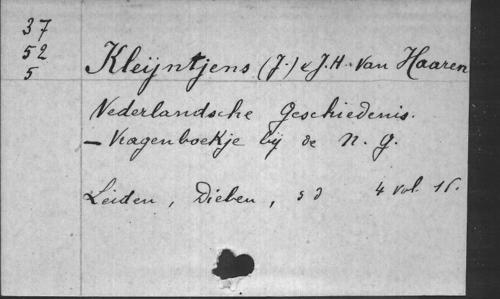 37
52
5
Kleijntjens (J.) & J.H. van Haaren
Nederlandsche Geschiedenis.
– Vragenboekje bij de N. G.
Leiden, Dieben, s d 4 vol. 16.